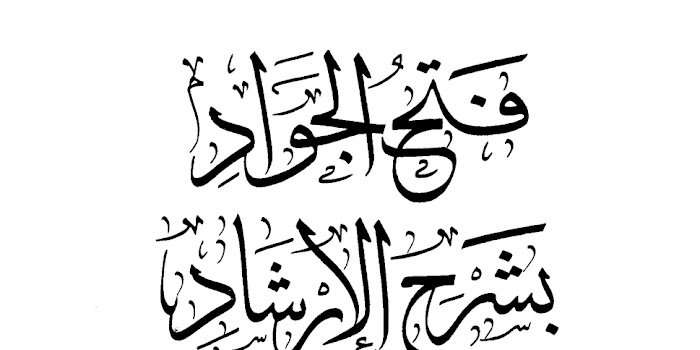 فَتحُ الجَوَادِ
بشَرْحِ الإِرْشَادِ